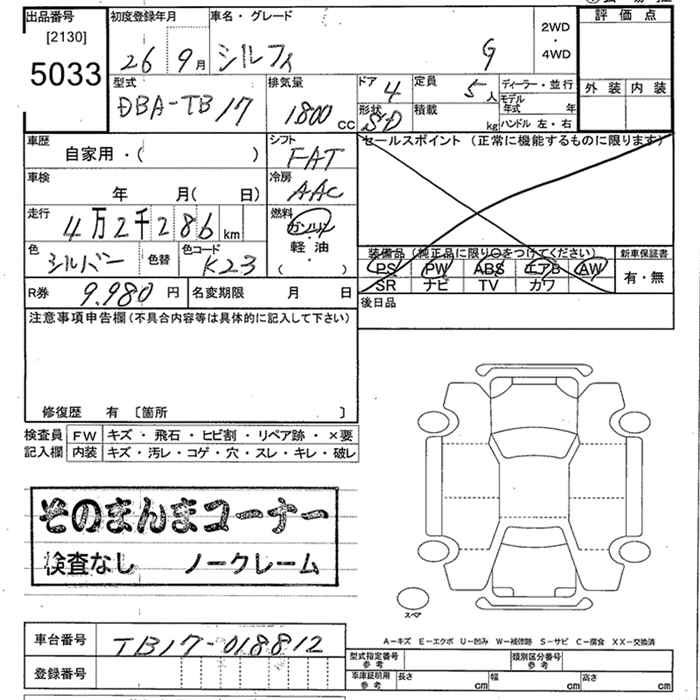 出品番号 初度登録年月 車名・グレード 2WD ・ 4WD 評価点
[2130]
5033 26 9月 シルフィ G
型式 排気量 ドア 4 定員 5人 ディーラー・並行 外装 内装
DBA-TB17 1800 cc 形状 SD 積載 kg モデル年式 年
ハンドル 左・右
車歴 シフト セールスポイント (正常に機能するものに限ります)
自家用・( ) FAT
車検 冷房
年 月( 日) AAC
走行 燃料
4万2千286km ガソリン
軽・油
色 シルバー 色替 色コード K23 ・( )
装備品(純正品に限り○をつけてください) 新車保証書
PS PW ABS エアB AW 有・無
SR ナビ TV カワ
R券 9.980円 名変期限 月 日 後日品
注意事項申告欄(不具合内容等は具体的に記入して下さい)
修復歴 有 〔箇所 〕
検査員 FW キズ・飛石・ヒビ割・リペア跡・×要
記入欄 内装 キズ・汚レ・コゲ・穴・スレ・キレ・破レ
そのまんまコーナー
検査なし ノークレーム
スペア
A−キズ E−エクボ U−凹み W−補修跡 S−サビ C−腐食 XX−交換済
車台番号 TB17-018812
型式指定番号 参考 類別区分番号 参考
登録番号
車庫証明用 参考 長さ cm 幅 cm 高さ cm